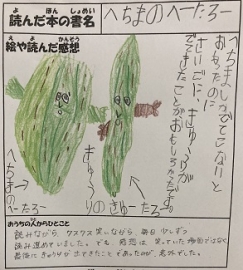 よ ほん しょめい
読んだ本の書名
へちまのへーたろー
え よ かんそう
絵や読んだ感想
へちましかでてこないと
おもったのに
さいごに、きゅうりが
でてきたことがおもしろかったです。
へちまのへーたろー
きゅうりのきゅーたろー
おうちの人からひとこと
読みながら、クスクス笑いながら、毎日少しずつ
読み進めていました。でも、感想は、笑っていた場面ではなく
最後にきゅうりが出てきたことであったのが、意外でした。